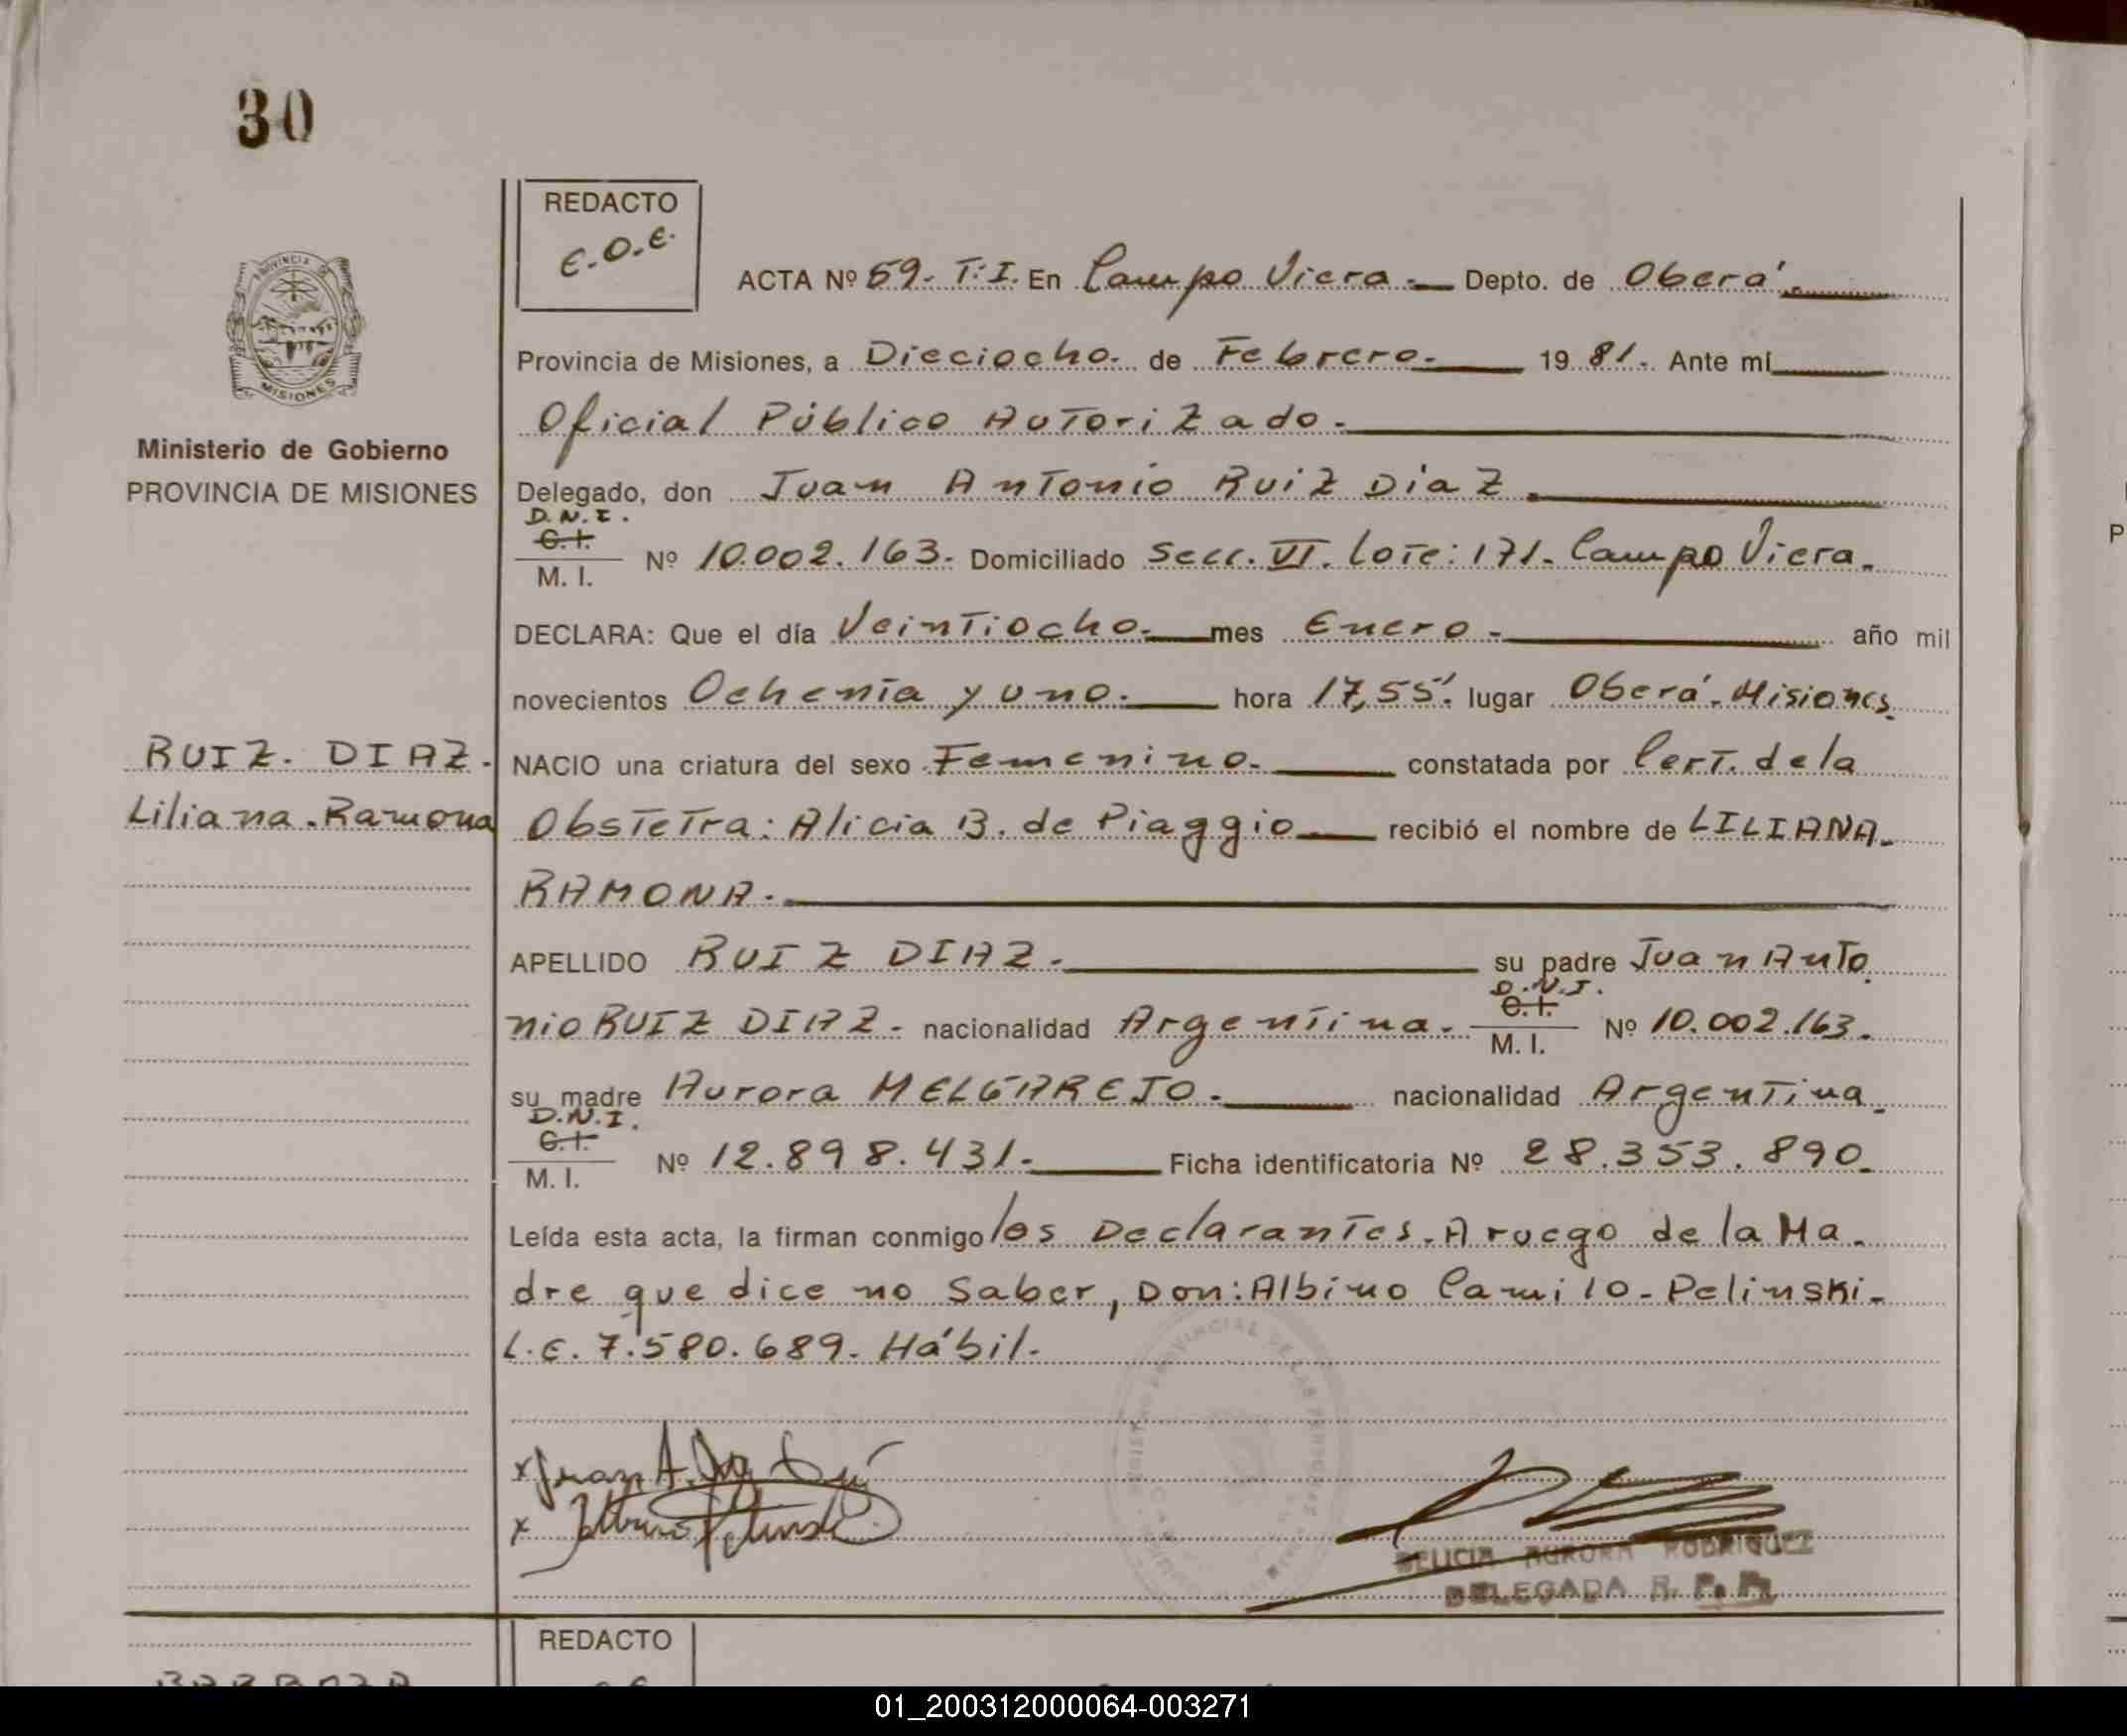 30
REDACTO
E.O.E.
ACTA Nº 59. T:I. En Campo Viera.- Depto. de Oberá.
PROVINCIA DE
MISIONES
Provincia de Misiones, a Dieciocho. de Febrero. 1981. Ante mí
Oficial Público Autorizado.
Ministerio de Gobierno
PROVINCIA DE MISIONES
Delegado, don Juan Antonio Ruiz Diaz.
D.N.I.
C.I.
M. I. Nº 10.002.163. Domiciliado Secc. VI. Lote: 171. Campo Viera.
DECLARA: Que el día Veintiocho. mes Enero. año mil
novecientos Ochenta y uno. hora 17,55'. lugar Oberá. Misiones.
RUIZ. DIAZ.
NACIO una criatura del sexo Femenino. constatada por Cert. de la
Liliana. Ramona
Obstetra: Alicia B. de Piaggio recibió el nombre de LILIANA.
RAMONA.
APELLIDO RUIZ DIAZ. su padre Juan Anto
D.N.I.
C.I.
nio RUIZ DIAZ. nacionalidad Argentina. M. I. Nº 10.002.163.
su madre Aurora MELGAREJO. nacionalidad Argentina.
D.N.I.
C.I.
M. I. Nº 12.898.431. Ficha identificatoria Nº 28.353.890.
Leída esta acta, la firman conmigo los Declarantes. A ruego de la Ma.
dre que dice no Saber, Don: Albino Camilo. Pelinski.
L.E. 7.580.689. Hábil.
x Juan A.
x
AURORA RODRIGUEZ
DELEGADA R. P. P.
REDACTO
01_200312000064-003271